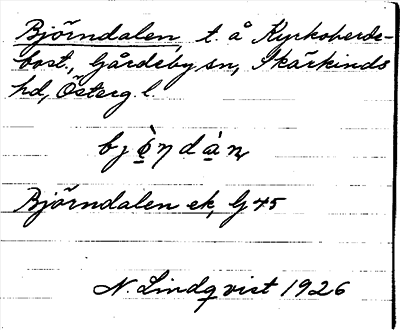 Björndalen, t. å Kyrkoherde-
bost., Gårdeby sn, Skärkinds
hd, Österg. l.
bjö̀ṇdàn
Björndalen ek, G 45
N. Lindqvist 1926